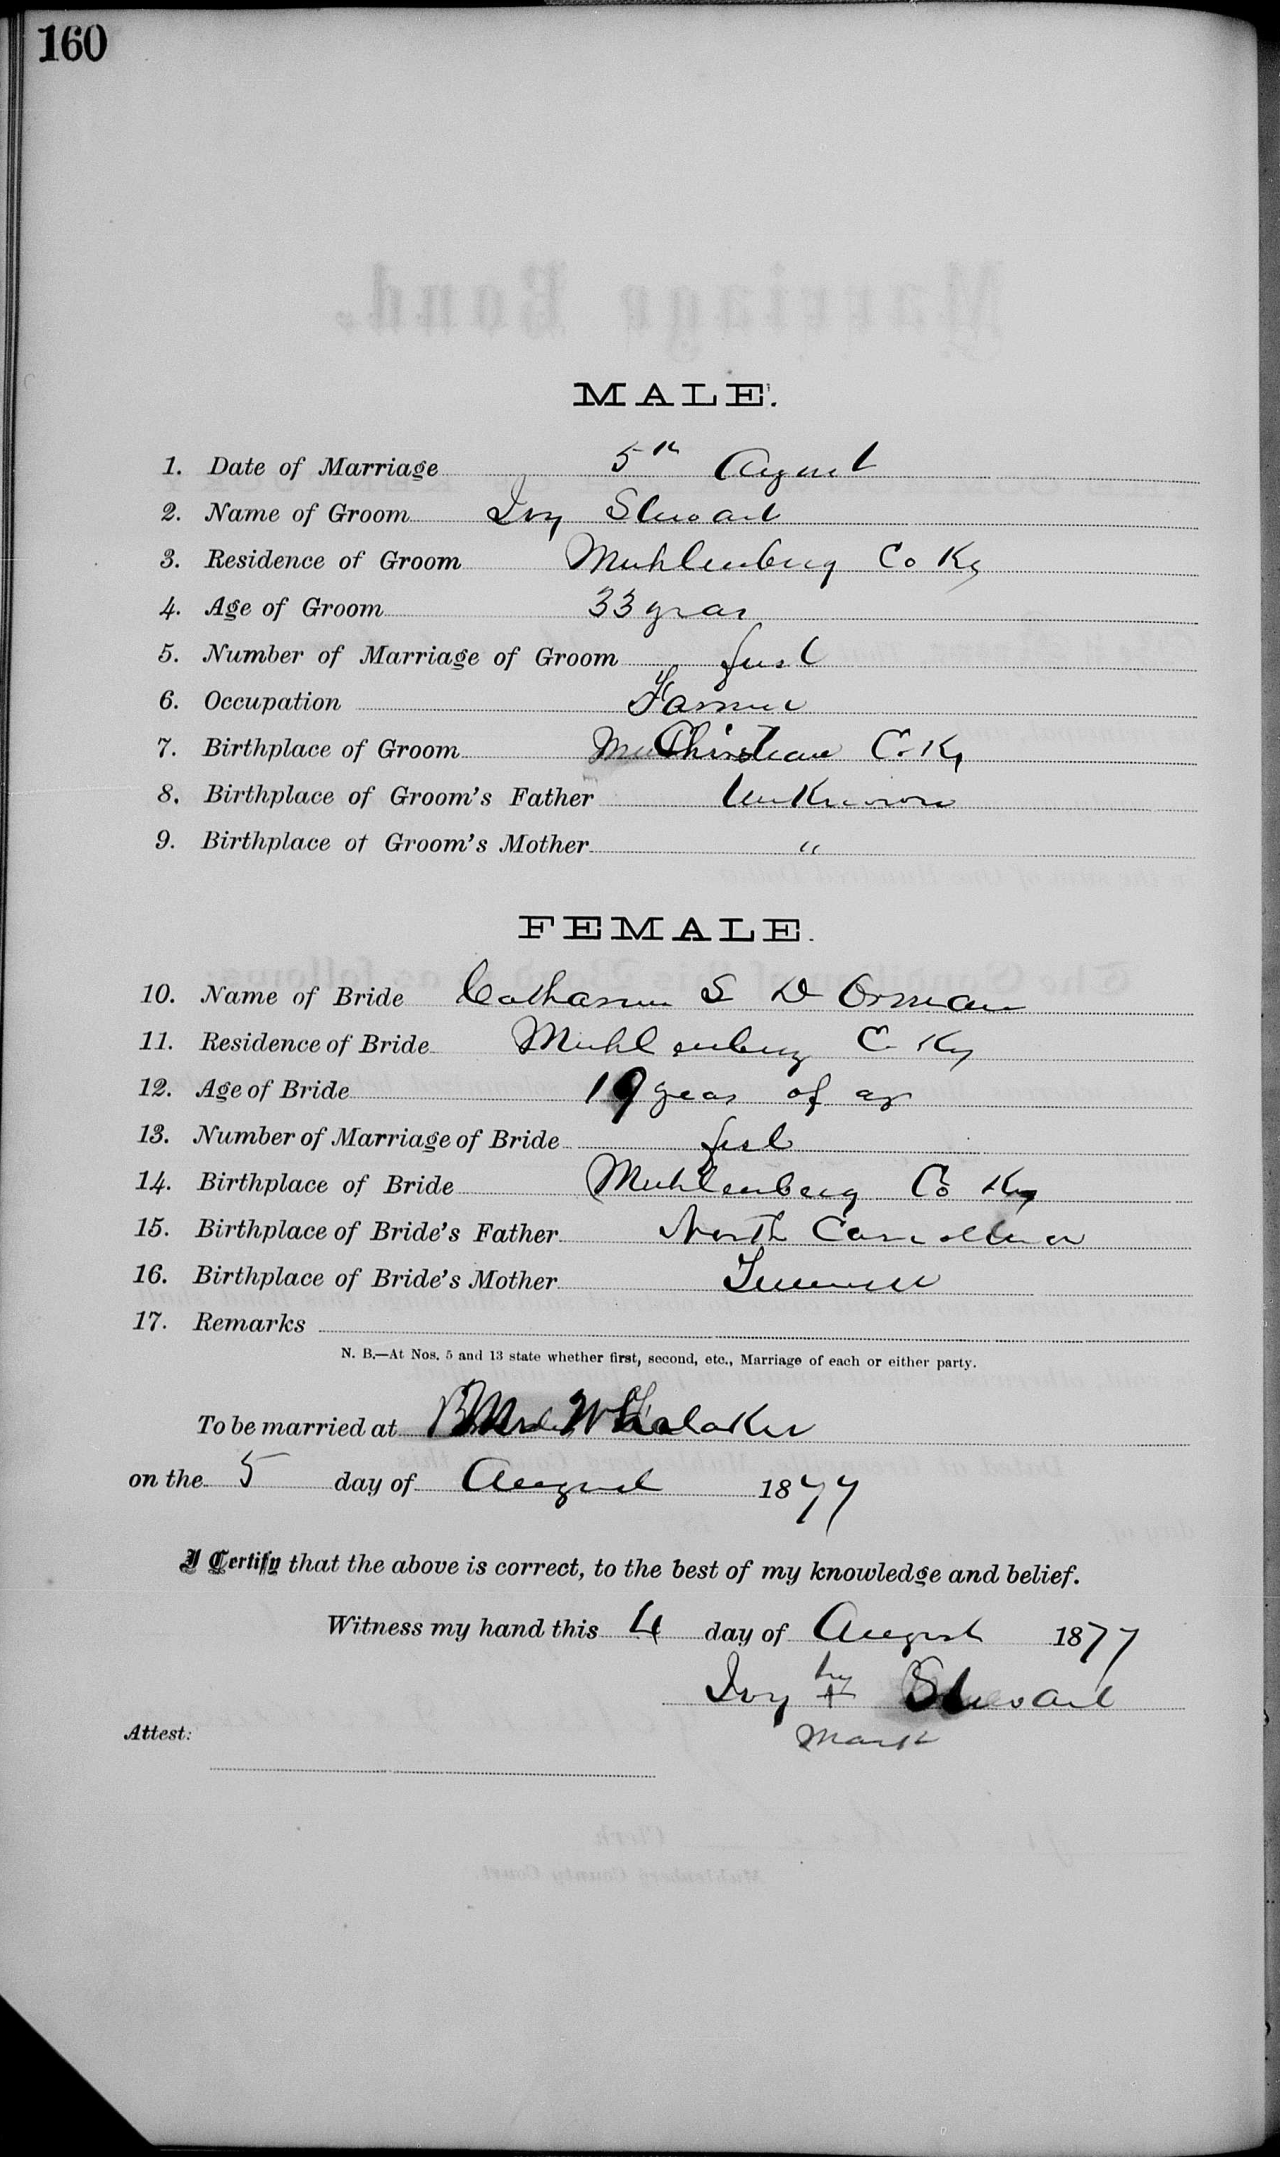 160
MALE.
1. Date of Marriage 5th August
2. Name of Groom Ivy Stewart
3. Residence of Groom Muhlenberg Co Ky
4. Age of Groom 33 year
5. Number of Marriage of Groom first
6. Occupation Farmer
7. Birthplace of Groom Christian C. Ky
8. Birthplace of Groom's Father Unknown
9. Birthplace of Groom's Mother "
FEMALE.
10. Name of Bride Catharine S D Orman
11. Residence of Bride Muhlenberg C Ky
12. Age of Bride 19 years of ag
13. Number of Marriage of Bride first
14. Birthplace of Bride Muhlenberg Co Ky
15. Birthplace of Bride's Father North Carrolina
16. Birthplace of Bride's Mother Tennessee
17. Remarks
N. B.—At Nos. 5 and 13 state whether first, second, etc., Marriage of each or either party.
To be married at
on the 5 day of August 1877
I Certify that the above is correct, to the best of my knowledge and belief.
Witness my hand this 4 day of August 1877
his
Ivy + Stewart
mark
Attest: